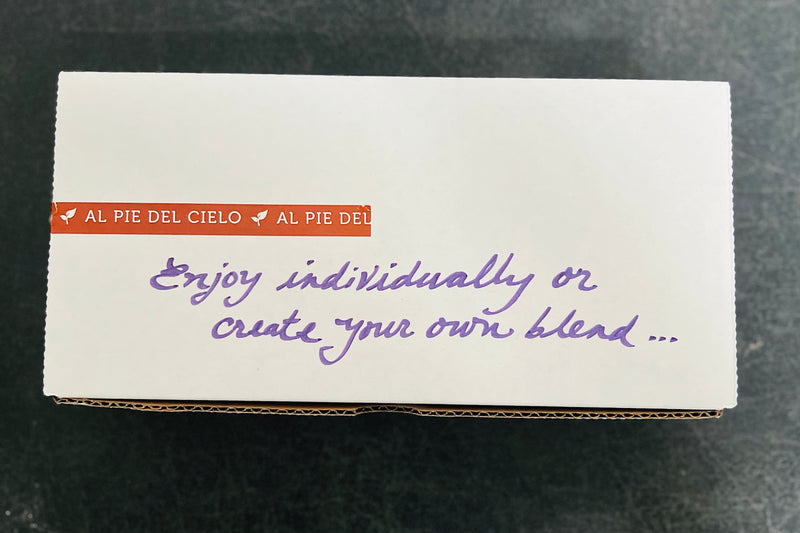 AL PIE DEL CIELO AL PIE DEL
Enjoy individually or
create your own blend...